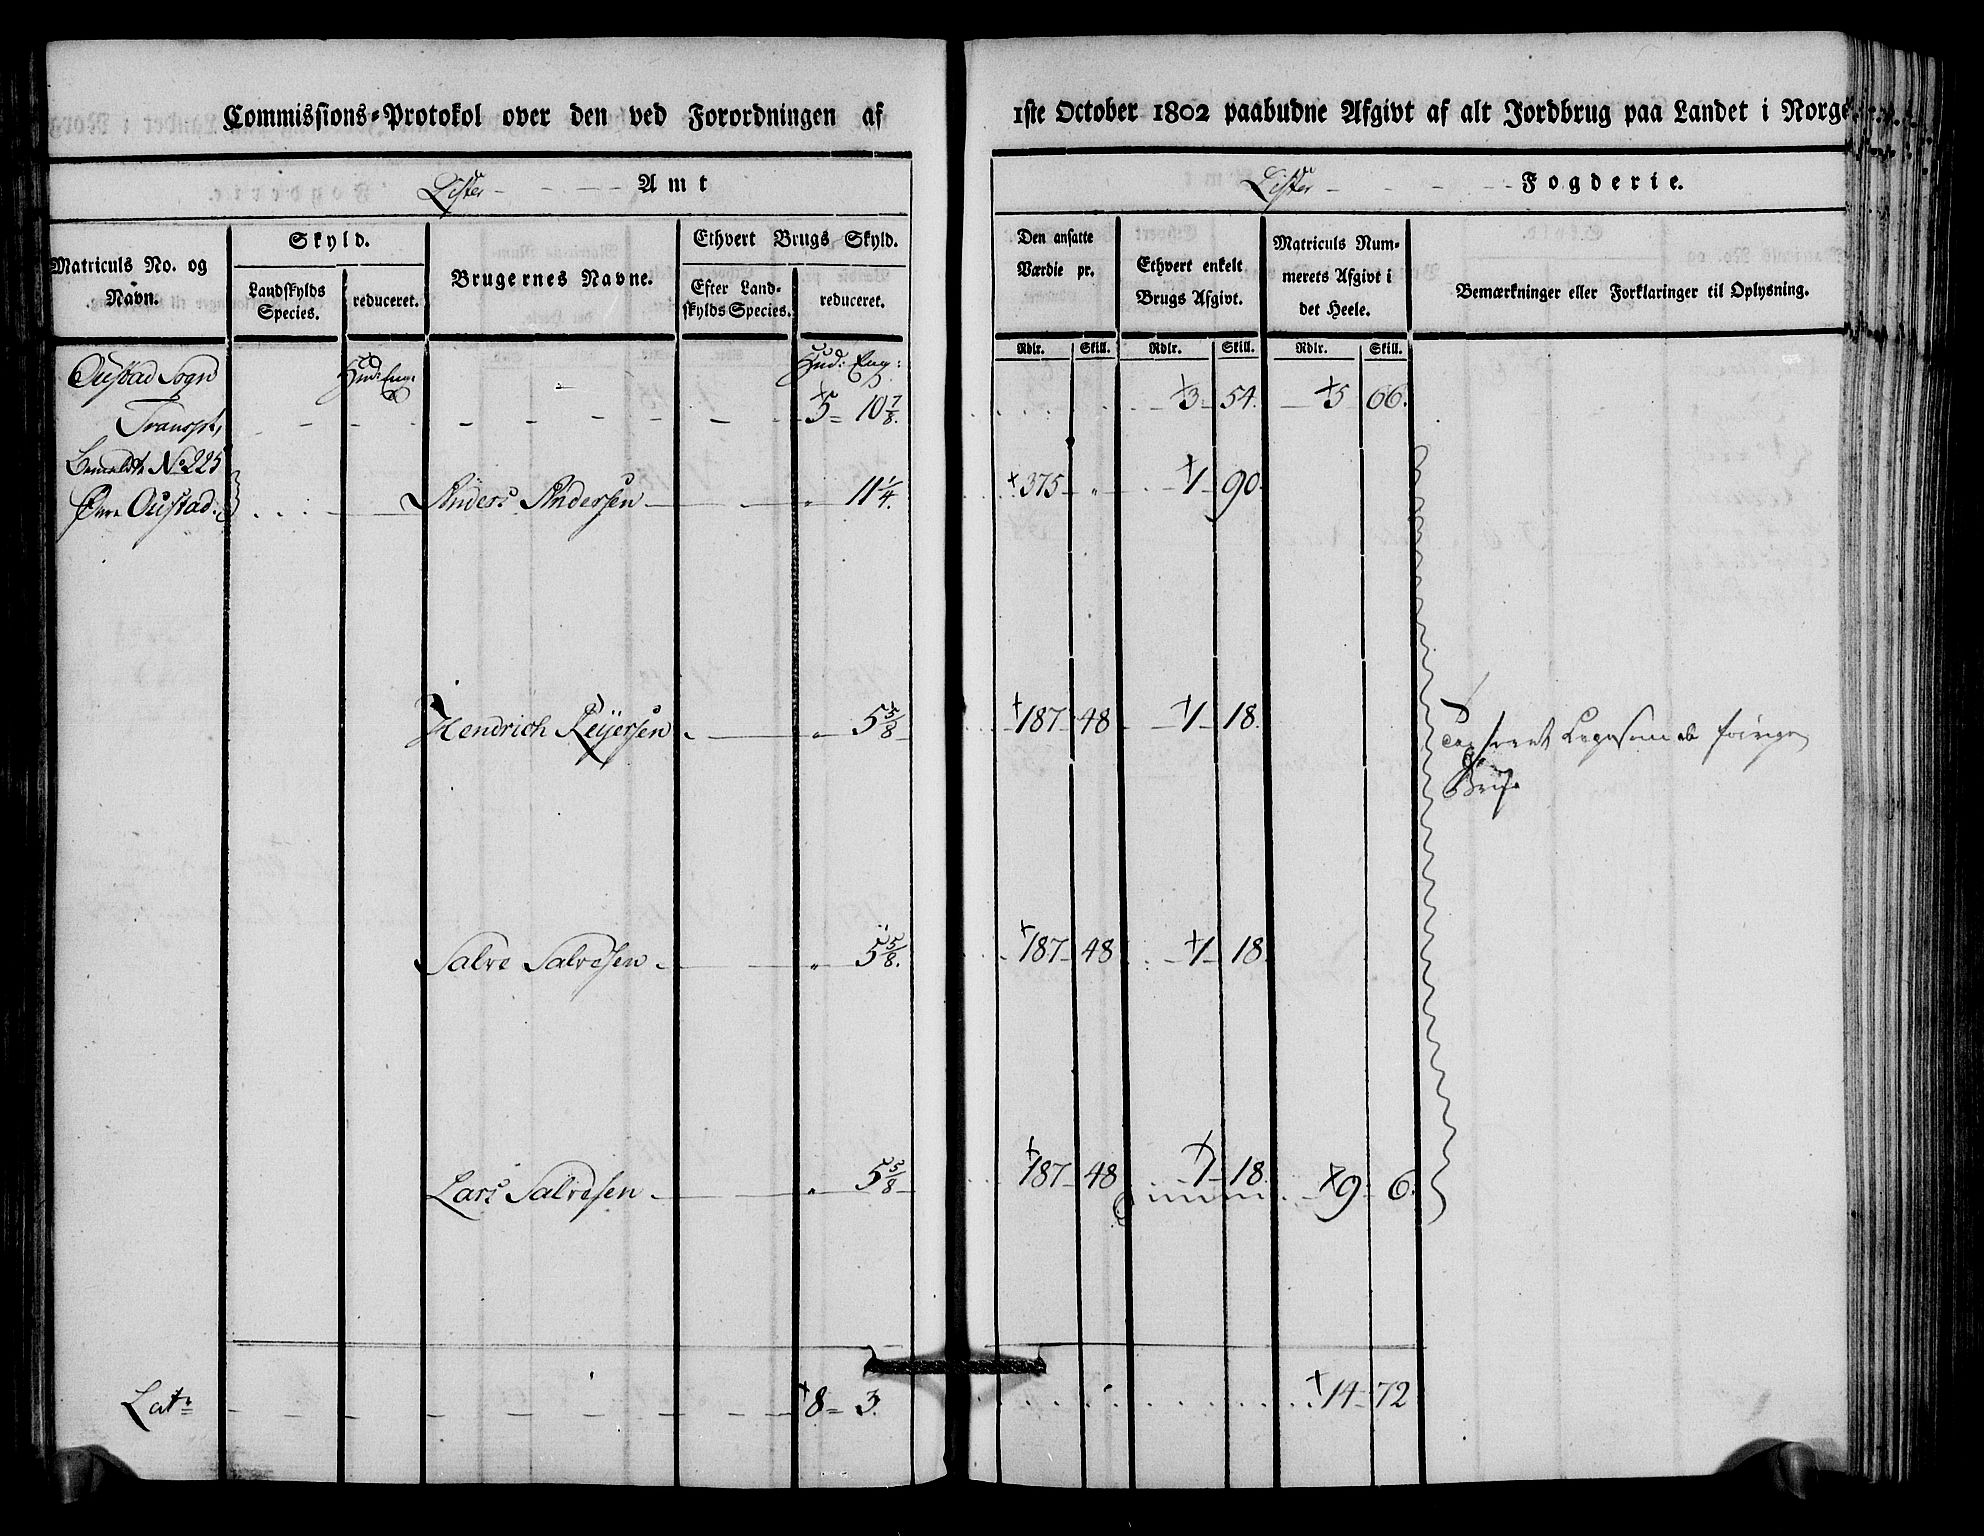 Commissions-Protokol over den ved Forordningen af 1ste October 1802 paabudne Afgivt af alt Jordbrug paa Landet i Norge.
Lister Amt
Lister Fogderie.
Matriculs No. og Navn.
Skyld.
Landskylds Species.
reduceret.
Brugernes Navne.
Ethvert Brugs Skyld.
Efter Landskylds Species.
reduceret.
Den ansatte Værdie pr.
Ethvert enkelt Brugs Afgivt.
Matriculs Nummerets Afgivt i det Heele.
Bemærkninger eller Forklaringer til Oplysning.
Rdlr. Skill. Rdlr. Skill. Rdlr. Skill.
Oustad Sogn Hud: Eng: Hud: Eng:
Transpt, 5 10 7/8. 3 54. 5 66.
No 225
Øvre Oustad: Anders Andersen " 11 1/4. 375 " 1 90.
Hendrich Reÿersen " 5 5/8 187 48 1 18.
Salve Salvesen " 5 5/8. 187 48 1 18.
Lars Salvesen " 5 5/8 187 48 1 18. 9 6.
Lat: 8 3. 14 72